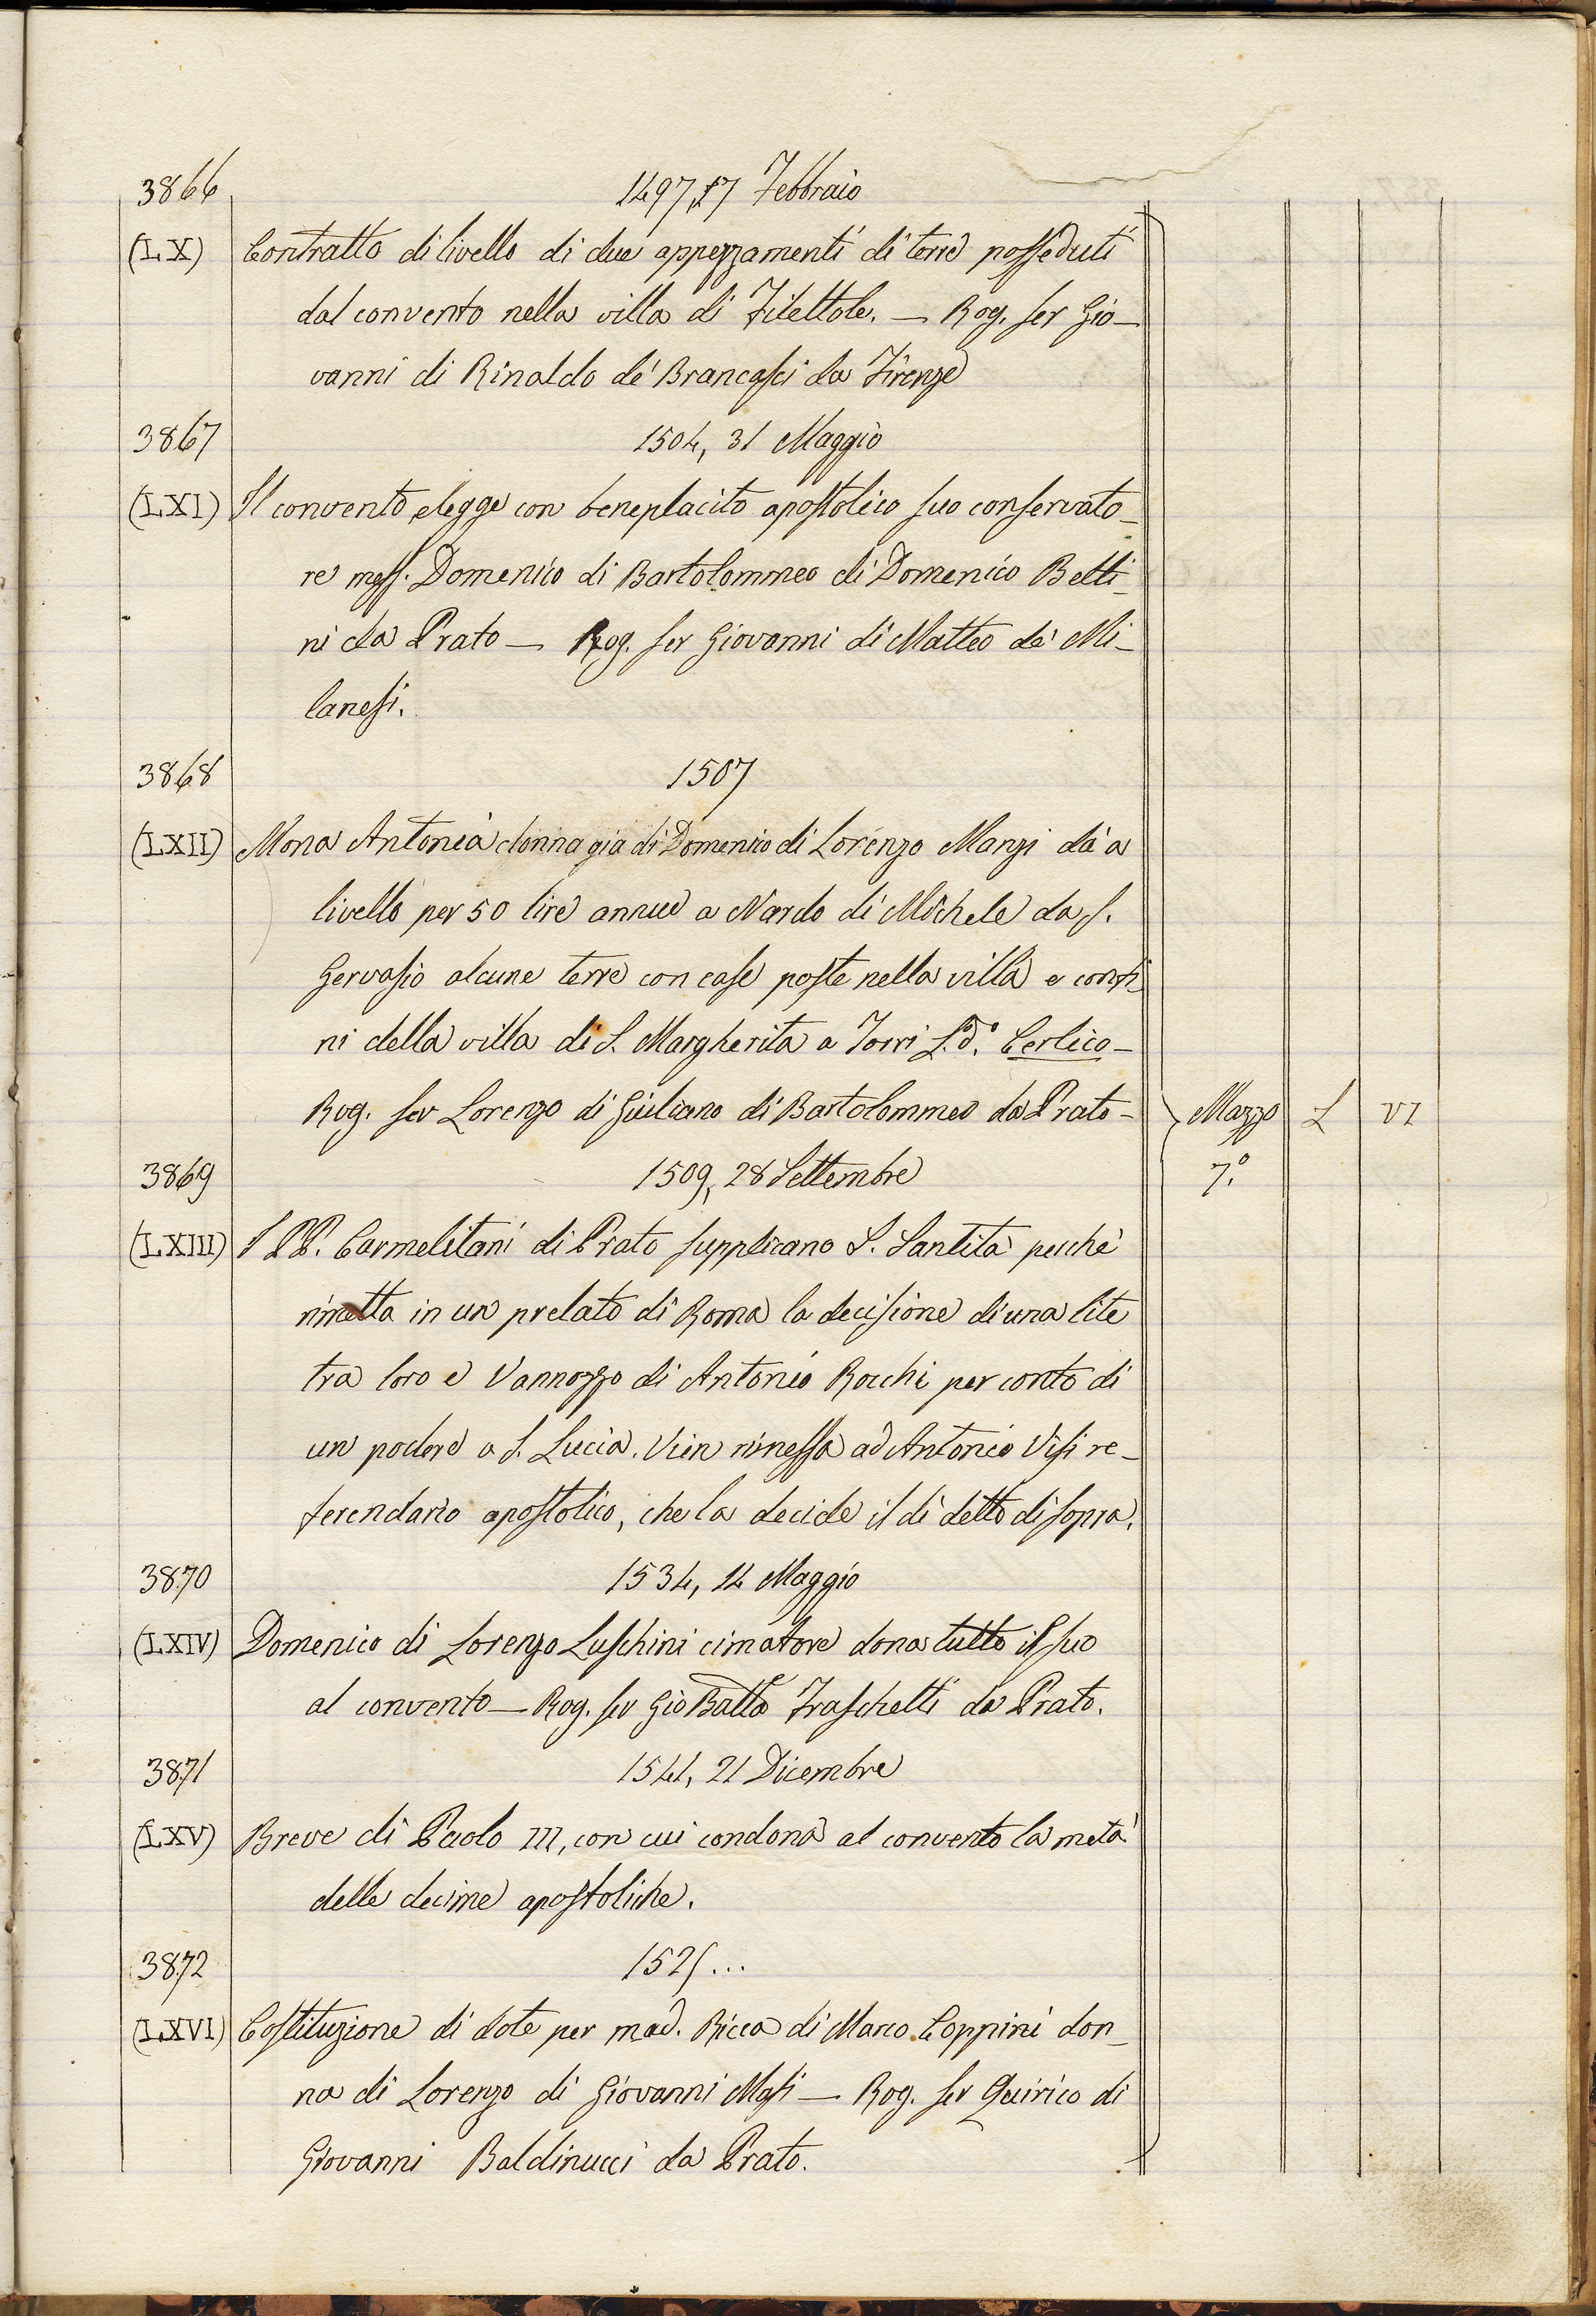 3866 1497, 17 Febbraio
(LX) Contratto di livello di due appezzamenti di terre posseduti
dal convento nella villa di Filettole. — Rog. ser Gio-
vanni di Rinaldo de' Brancasci da Firenze
3867 1504, 31 Maggio
(LXI) Il convento elegge con beneplacito apostolico suo conservato-
re mess. Domenico di Bartolommeo di Domenico Betti-
ni da Prato — Rog. ser Giovanni di Matteo de' Mi-
lanesi.
3868 1507
(LXII) Mona Antonia donna già di Domenico di Lorenzo Manzi dà a
livello per 50 lire annue a Nardo di Michele da S.
Gervasio alcune terre con case poste nella villa e confi-
ni della villa di S. Margherita a Torri L.º d.º Cerlico -
Rog. ser Lorenzo di Giuliano di Bartolommeo da Prato - Mazzo L VI
3869 1509, 28 Settembre 7.º
(LXIII) I PP. Carmelitani di Prato supplicano S. Santità perchè
rimetta in un prelato di Roma la decisione di una lite
tra loro e Vannozzo di Antonio Rocchi per conto di
un podere a S. Lucia. Vien rimessa ad Antonio Visi re-
ferendario apostolico, che la decide il dì detto di sopra.
3870 1534, 14 Maggio
(LXIV) Domenico di Lorenzo Luschini cimatore dona tutto il suo
al convento — Rog. ser Gio Batta Fraschetti da Prato.
3871 1541, 21 Dicembre
(LXV) Breve di Paolo III, con cui condona al convento la metà
delle decime apostoliche.
3872 152...
(LXVI) Costituzione di dote per mad. Ricca di Marco Coppini don-
na di Lorenzo di Giovanni Masi — Rog. ser Quirico di
Giovanni Baldinucci da Prato.